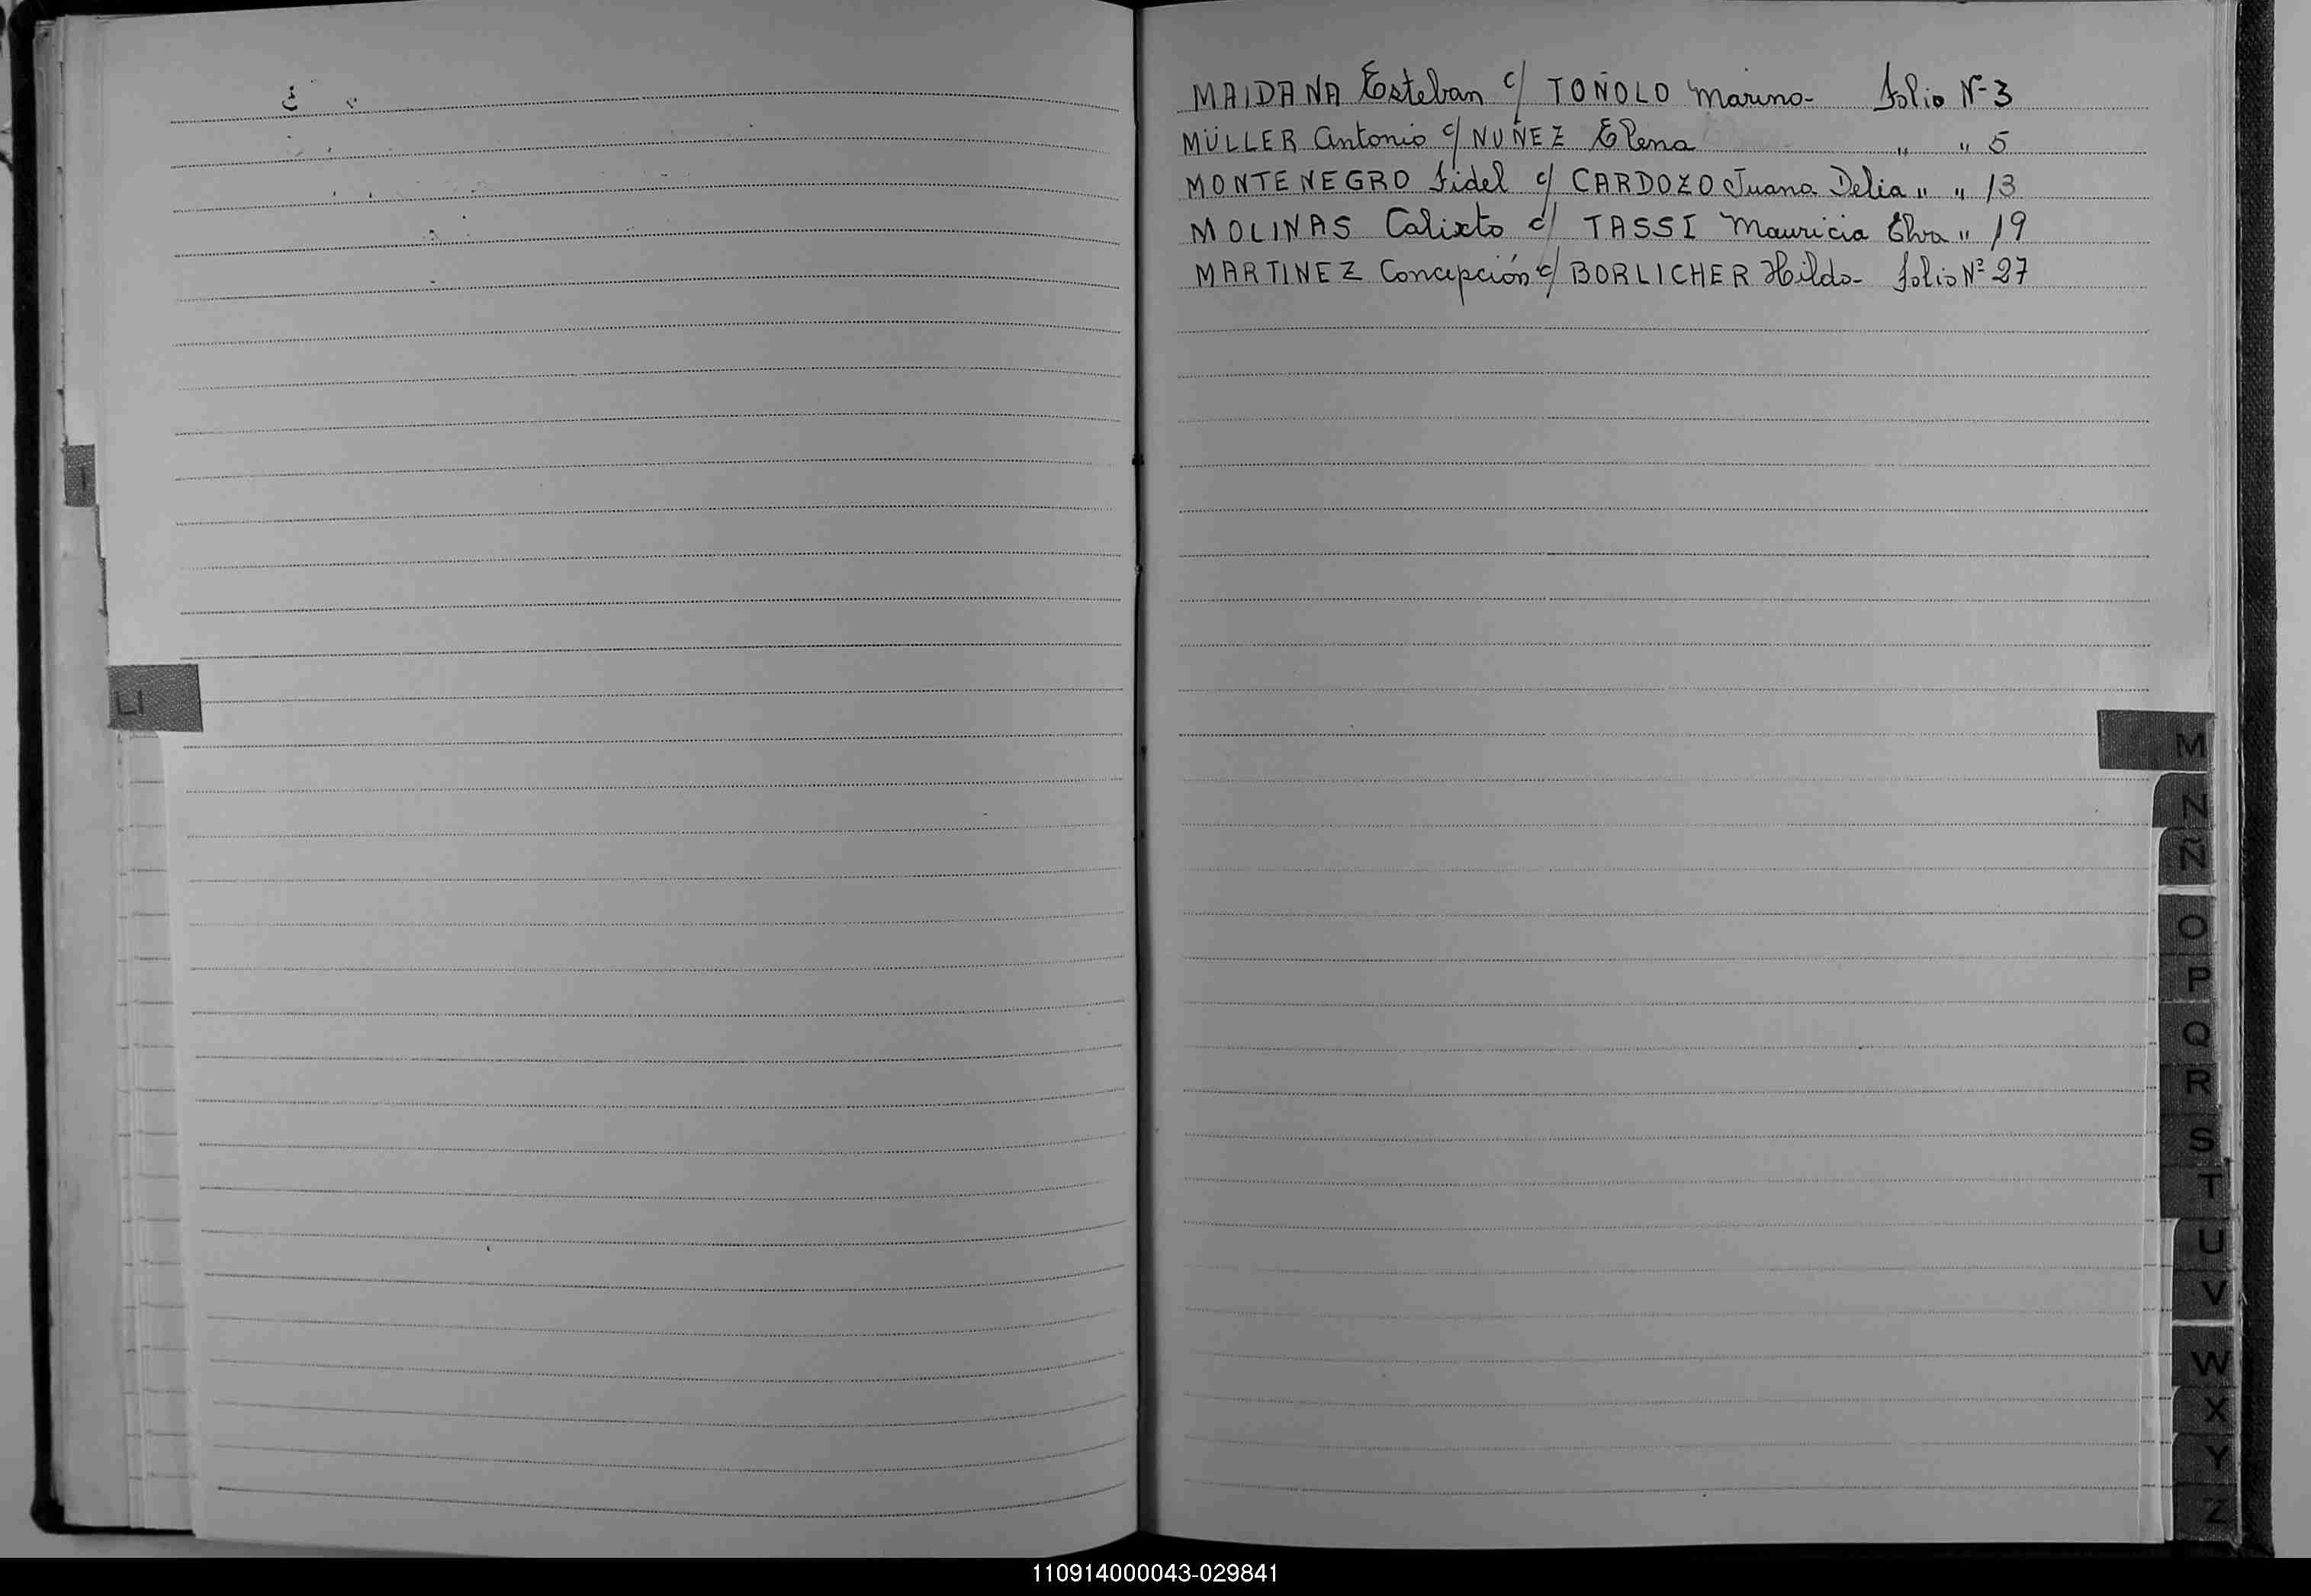 MAIDANA Esteban c/ TOÑOLO Marino- folio Nº 3
MÜLLER Antonio c/ NUÑEZ Elena " " 5
MONTENEGRO Fidel c/ CARDOZO Juana Delia " " 13
MOLINAS Calixto c/ TASSI Mauricia Elva " 19
MARTINEZ Concepción c/ BORLICHER Hilda- folio Nº 27
I
Ll
M
N
Ñ
O
P
Q
R
S
T
U
V
W
X
Y
Z
110914000043-029841